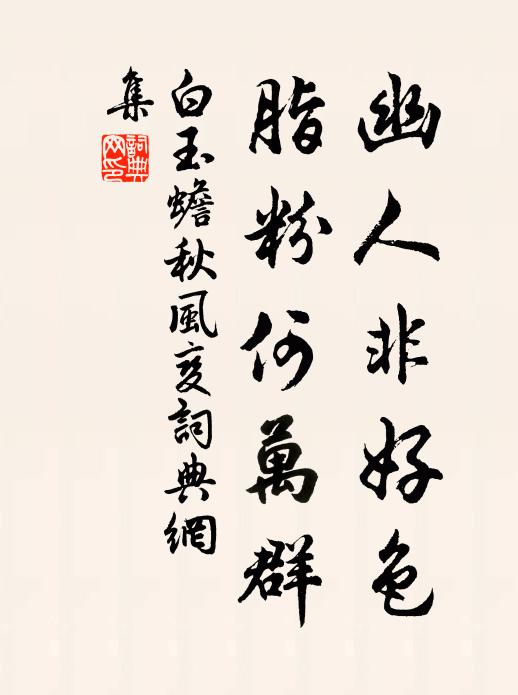 幽人非好色
脂粉何萬群
白玉蟾秋風变詞典網
集
詞典
网印